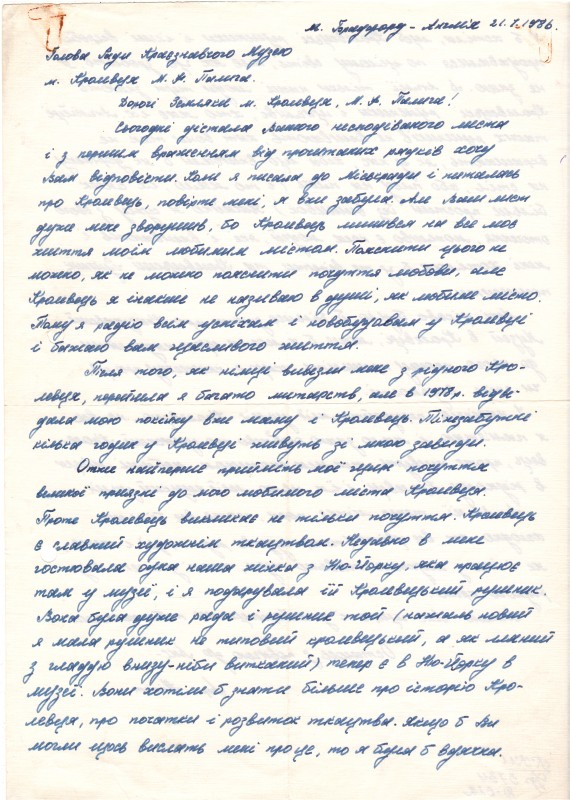 м. Брадфорд - Англія 21.I.1986.
Голова Ради Краєзнавчого Музею
м. Кролевця М. А. Палига.
Дорогі Земляки м. Кролевця, М. А. Палига!
Сьогодні дістала Вашого несподіваного листа
і з першим враженням від прочитаних рядків хочу
Вам відповісти. Коли я писала до і питалась
про Кролевець, повірте мені, я вже забула. Але Ваш лист
дуже мене зворушив, бо Кролевець лишився на все моє
життя моїм любимим містом. Пояснити цього не
можно, як не можно пояснити почуття любови, але
Кролевець я інакше не називаю в душі, як любиме місто.
Тому я радію всім успіхам і новобудовам у Кролевці
і бажаю вам щасливого життя.
Після того, як німці вивезли мене з рідного Кро-
левця, перейшла я багато митарств, але в 1978 р. відві-
дала мою покійну вже маму і Кролевець. Ті незабутні
кілька годин у Кролевці живуть зі мною завжди.
Отже найперше прийміть мої щирі почуття
великої приязні до мого любимого міста Кролевця.
Проте Кролевець викликає не тільки почуття. Кролевець
є славний художнім ткацтвом. Недавно в мене
гостювала одна наша жінка з Ню-Йорку, яка працює
там у музеї, і я подарувала їй Кролевецький рушник.
Вона була дуже рада і рушник той (нажаль новий
я мала рушник не типовий кролевецький, а як лляний
з гладдю внизу-ніби витканий) тепер є в Ню-Йорку в
музеї. Вони хотіли б знати більше про історію Кро-
левця, про початки і розвиток ткацтва. Якщо б Ви
могли щось вислать мені про це, то я була б вдячна.